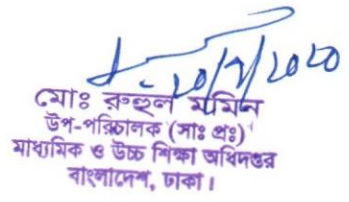 ২০/৭/২০২০
মোঃ রুহুল মমিন
উপ-পরিচালক (সাঃ প্রঃ)
মাধ্যমিক ও উচ্চ শিক্ষা অধিদপ্তর
বাংলাদেশ, ঢাকা।